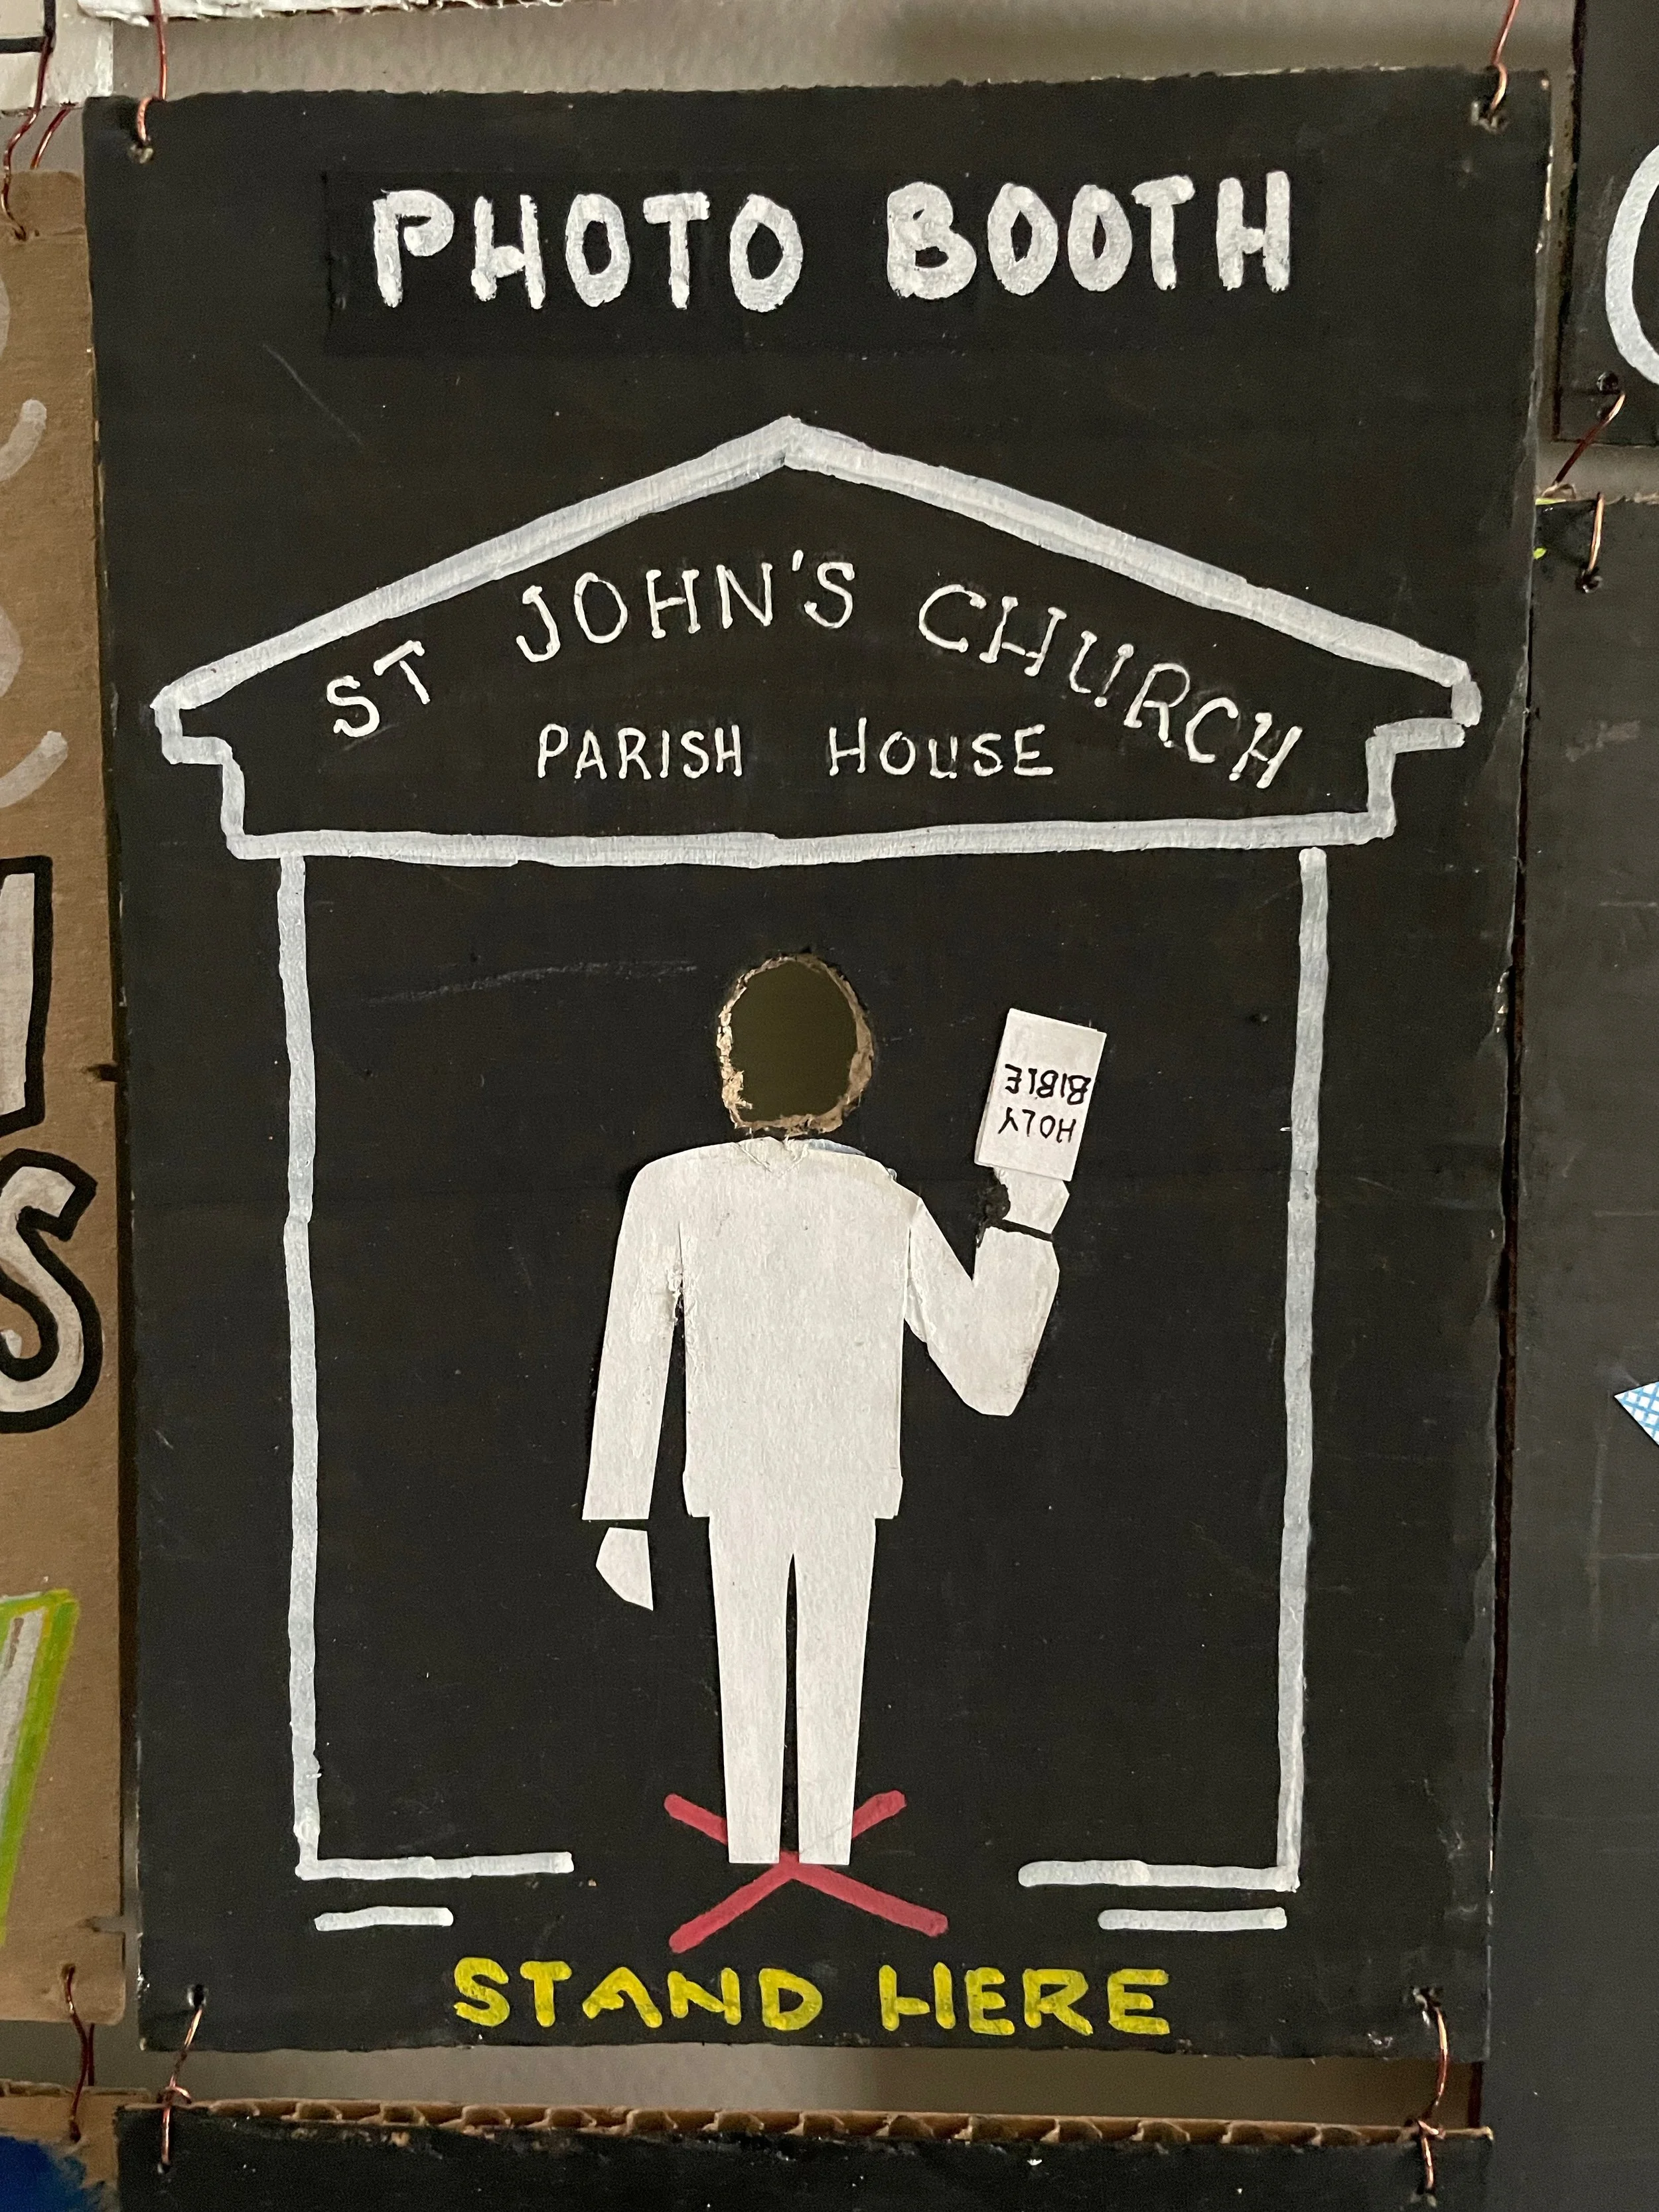 PHOTO BOOTH
ST JOHN'S CHURCH
PARISH HOUSE
HOLY
BIBLE
STAND HERE